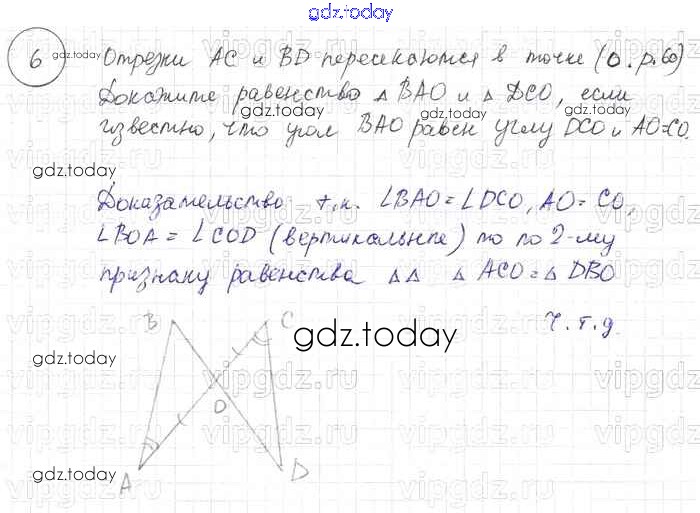 gdz.today
6 gdz.today Отрезки AC и BD пересекаются в точке (о. р.60)
gdz.today
Докажите равенство △ BAO и △ DCO, если
известно, что угол BAO равен углу DCO и AO=CO.
gdz.today
Доказательство т.к. ∠BAO = ∠DCO, AO = CO,
∠BOA = ∠COD (вертикальные) то по 2-му
признаку равенства △△ △ ACO = △ DBO
B C
ч.т.д.
gdz.today
gdz.today
O
gdz.today
A D
gdz.today
gdz.today
vipgdz.ru vipgdz.ru vipgdz.ru